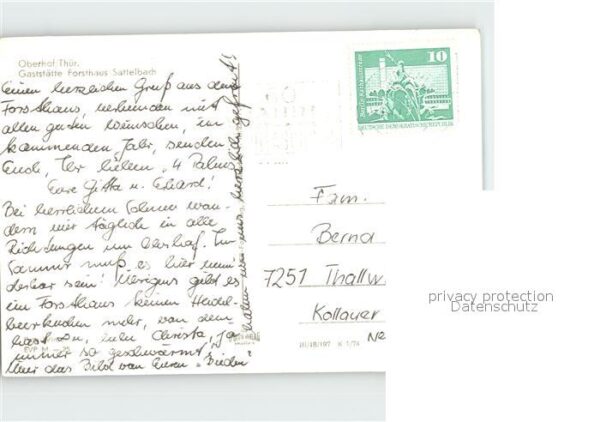 Oberhof Thür.
Gaststätte Forsthaus Sattelbach
Einen herzlichen Gruß aus dem
Forsthaus, verbunden mit
allen guten Wünschen, im
kommenden Jahr, senden
Euch, Ihr lieben "4 Palms"
Eure Gitta u. Ehard!
Bei herrlichem Schnee wan-
dern wir täglich in alle
Richtungen um Oberhof. Im
Sommer muß es hier wun-
derbar sein! Übrigens gibt es
im Forsthaus keinen Heidel-
beerkuchen mehr, von dem
hast Du, liebe Christa, ja
immer so geschwärmt.
Über das Bild von Euren
haben wir uns herzlich gefreut!!
10
Berlin, Rathausstrasse
DEUTSCHE DEMOKRATISCHE REPUBLIK
Fam.
Bernd
7251 Thallw
Kollauer
III/18/197 K 1/74
privacy protection
Datenschutz